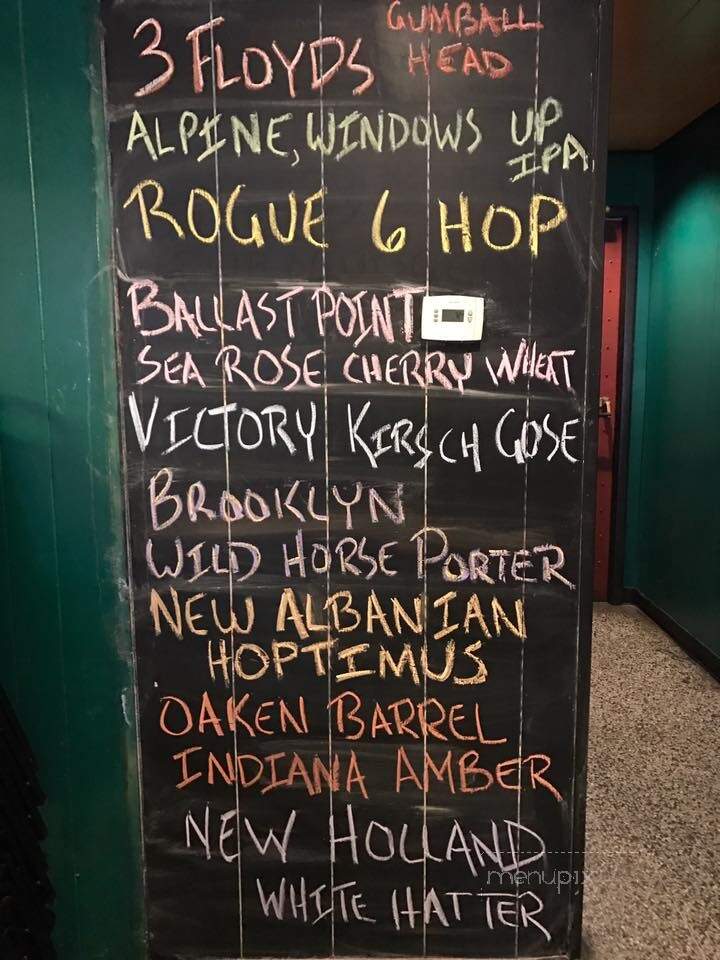 3 FLOYDS GUMBALL
HEAD
ALPINE, WINDOWS UP
IPA
ROGUE 6 HOP
BALLAST POINT
SEA ROSE CHERRY WHEAT
VICTORY KIRSCH GOSE
BROOKLYN
WILD HORSE PORTER
NEW ALBANIAN
HOPTIMUS
OAKEN BARREL
INDIANA AMBER
NEW HOLLAND
menupix
WHITE HATTER